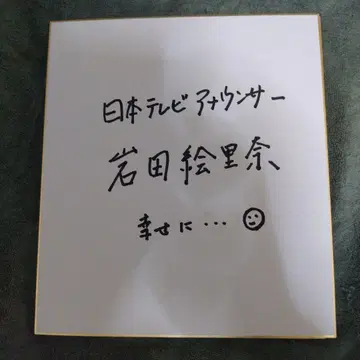 日本テレビ アナウンサー
岩田絵里奈
幸せに…☺